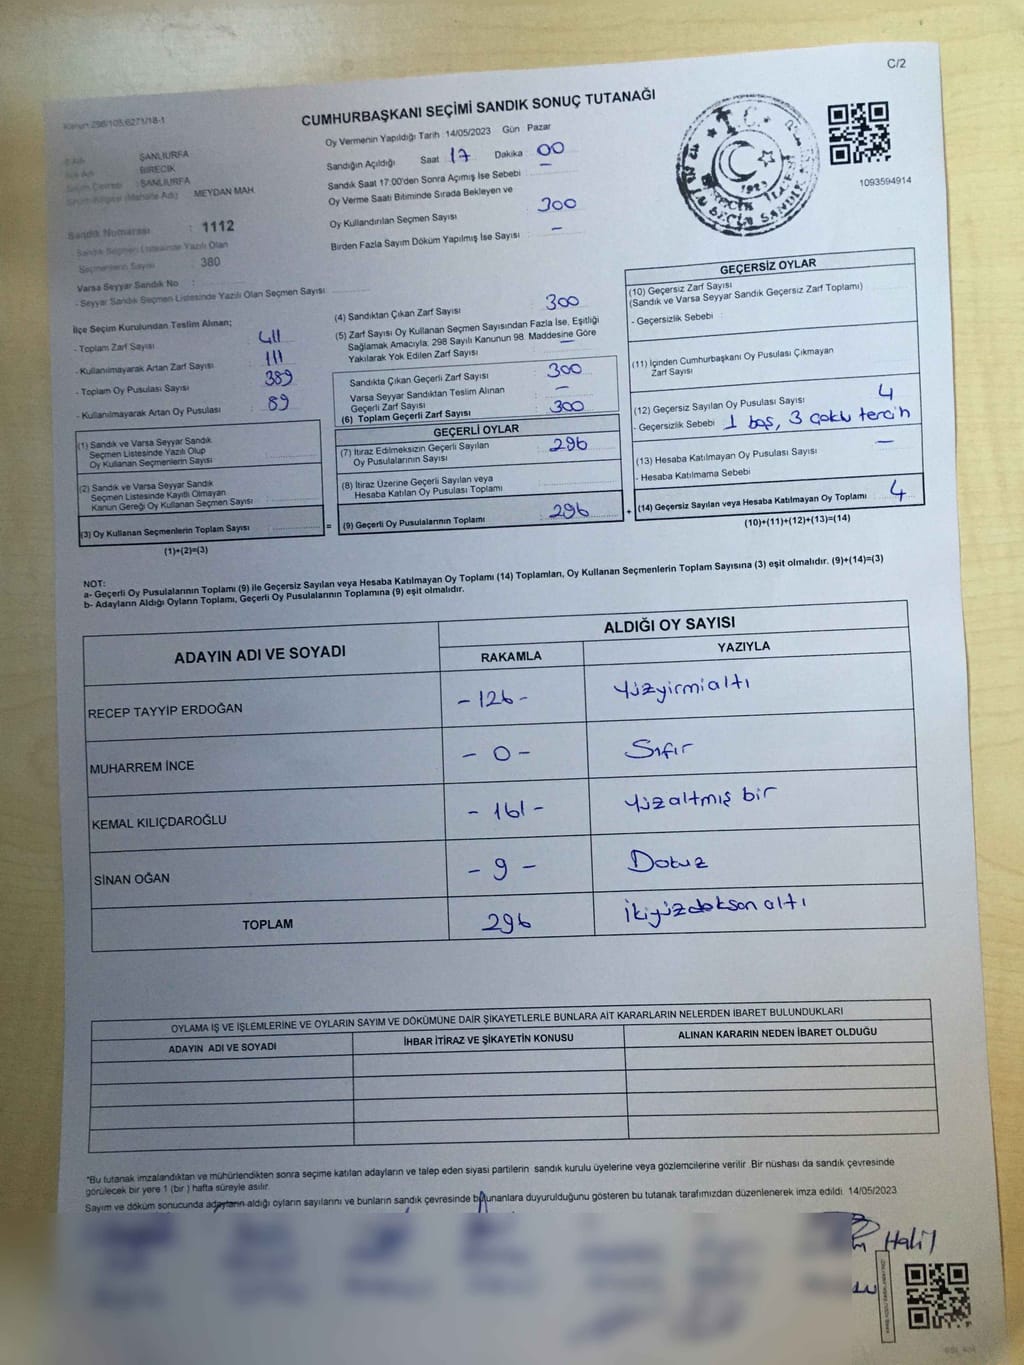 C/2
Kanun 298/105,6271/18-1
CUMHURBAŞKANI SEÇİMİ SANDIK SONUÇ TUTANAĞI
ŞANLIURFA
BİRECİK
ŞANLIURFA
MEYDAN MAH.
Sandık Numarası : 1112
Sandık Seçmen Listesinde Yazılı Olan
Seçmenlerin Sayısı : 380
Varsa Seyyar Sandık No :
- Seyyar Sandık Seçmen Listesinde Yazılı Olan Seçmen Sayısı
Oy Vermenin Yapıldığı Tarih : 14/05/2023 Gün Pazar
Sandığın Açıldığı Saat 17 Dakika 00
Sandık Saat 17:00'den Sonra Açımış İse Sebebi –
Oy Verme Saati Bitiminde Sırada Bekleyen ve
Oy Kullandırılan Seçmen Sayısı : 300
Birden Fazla Sayım Döküm Yapılmış İse Sayısı –
T.C.
1923
1093594914
İlçe Seçim Kurulundan Teslim Alınan;
- Toplam Zarf Sayısı : 411
- Kullanılmayarak Artan Zarf Sayısı : 111
- Toplam Oy Pusulası Sayısı : 389
- Kullanılmayarak Artan Oy Pusulası : 89
(1) Sandık ve Varsa Seyyar Sandık
Seçmen Listesinde Yazılı Olup
Oy Kullanan Seçmenlerin Sayısı
(2) Sandık ve Varsa Seyyar Sandık
Seçmen Listesinde Kayıtlı Olmayan
Kanun Gereği Oy Kullanan Seçmen Sayısı :
(3) Oy Kullanan Seçmenlerin Toplam Sayısı :
(1)+(2)=(3)
(4) Sandıktan Çıkan Zarf Sayısı : 300
(5) Zarf Sayısı Oy Kullanan Seçmen Sayısından Fazla İse, Eşitliği
Sağlamak Amacıyla, 298 Sayılı Kanunun 98. Maddesine Göre
Yakılarak Yok Edilen Zarf Sayısı : –
Sandıkta Çıkan Geçerli Zarf Sayısı : 300
Varsa Seyyar Sandıktan Teslim Alınan
Geçerli Zarf Sayısı : –
(6) Toplam Geçerli Zarf Sayısı : 300
GEÇERLİ OYLAR
(7) İtiraz Edilmeksizin Geçerli Sayılan
Oy Pusulalarının Sayısı : 296
(8) İtiraz Üzerine Geçerli Sayılan veya
Hesaba Katılan Oy Pusulası Toplamı :
= (9) Geçerli Oy Pusulalarının Toplamı : 296
GEÇERSİZ OYLAR
(10) Geçersiz Zarf Sayısı
(Sandık ve Varsa Seyyar Sandık Geçersiz Zarf Toplamı)
- Geçersizlik Sebebi :
(11) İçinden Cumhurbaşkanı Oy Pusulası Çıkmayan
Zarf Sayısı
(12) Geçersiz Sayılan Oy Pusulası Sayısı : 4
- Geçersizlik Sebebi : 1 boş, 3 çoklu tercih
(13) Hesaba Katılmayan Oy Pusulası Sayısı : –
- Hesaba Katılmama Sebebi
+ (14) Geçersiz Sayılan veya Hesaba Katılmayan Oy Toplamı : 4
(10)+(11)+(12)+(13)=(14)
NOT:
a- Geçerli Oy Pusulalarının Toplamı (9) ile Geçersiz Sayılan veya Hesaba Katılmayan Oy Toplamı (14) Toplamları, Oy Kullanan Seçmenlerin Toplam Sayısına (3) eşit olmalıdır. (9)+(14)=(3)
b- Adayların Aldığı Oyların Toplamı, Geçerli Oy Pusulalarının Toplamına (9) eşit olmalıdır.
ADAYIN ADI VE SOYADI
ALDIĞI OY SAYISI
RAKAMLA YAZIYLA
RECEP TAYYİP ERDOĞAN -126- Yüzyirmialtı
MUHARREM İNCE - 0 - Sıfır
KEMAL KILIÇDAROĞLU - 161 - Yüzaltmış bir
SİNAN OĞAN - 9 - Dokuz
TOPLAM 296 İkiyüzdoksan altı
OYLAMA İŞ VE İŞLEMLERİNE VE OYLARIN SAYIM VE DÖKÜMÜNE DAİR ŞİKAYETLERLE BUNLARA AİT KARARLARIN NELERDEN İBARET BULUNDUKLARI
ADAYIN ADI VE SOYADI İHBAR İTİRAZ VE ŞİKAYETİN KONUSU ALINAN KARARIN NEDEN İBARET OLDUĞU
*Bu tutanak imzalandıktan ve mühürlendikten sonra seçime katılan adayların ve talep eden siyasi partilerin sandık kurulu üyelerine veya gözlemcilerine verilir. Bir nüshası da sandık çevresinde
görülecek bir yere 1 (bir ) hafta süreyle asılır.
Sayım ve döküm sonucunda adayların aldığı oyların sayılarını ve bunların sandık çevresinde bulunanlara duyurulduğunu gösteren bu tutanak tarafımızdan düzenlenerek imza edildi. 14/05/2023
Halil